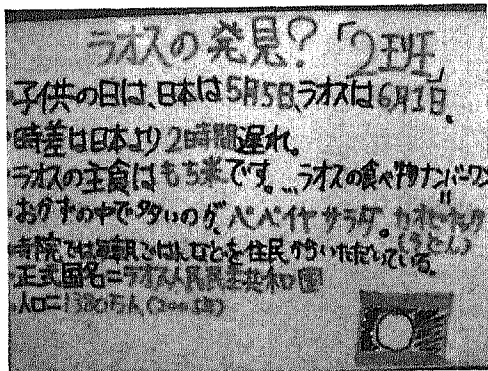 ラオスの発見?「2班」
・子供の日は、日本は5月5日、ラオスは6月1日。
・時差は日本より2時間遅れ。
・ラオスの主食はもち米です。…ラオスの食べ物ナンバーワン
・おかずの中で多いのが、ペペイヤサラダ。
(うどん)
・寺院では毎朝ごはんなどを住民からいただいている。
・正式国名=ラオス人民民主共和国
・人口=